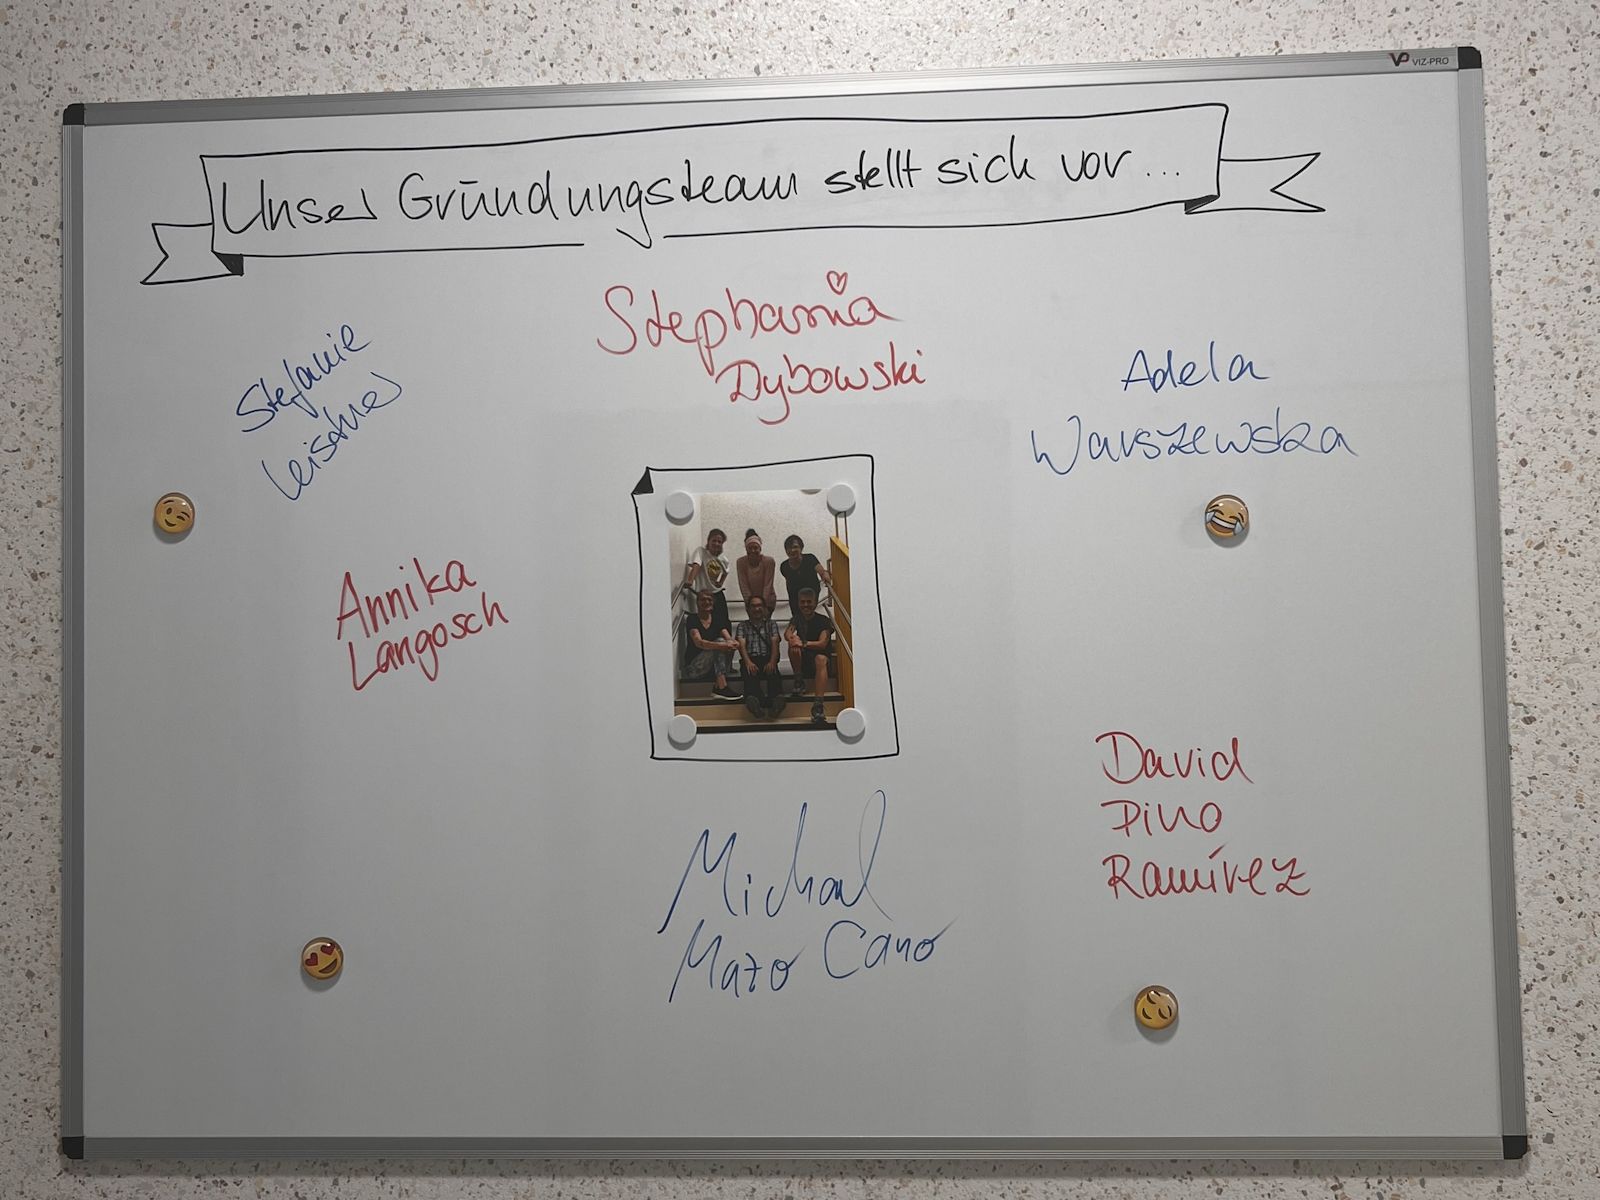 VIZ-PRO
Unser Gründungsteam stellt sich vor...
Stephania
Dybowski
Stefanie
Leistner
Adela
Warszewska
Annika
Langosch
David
Pino
Ramírez
Michael
Mazo Cano